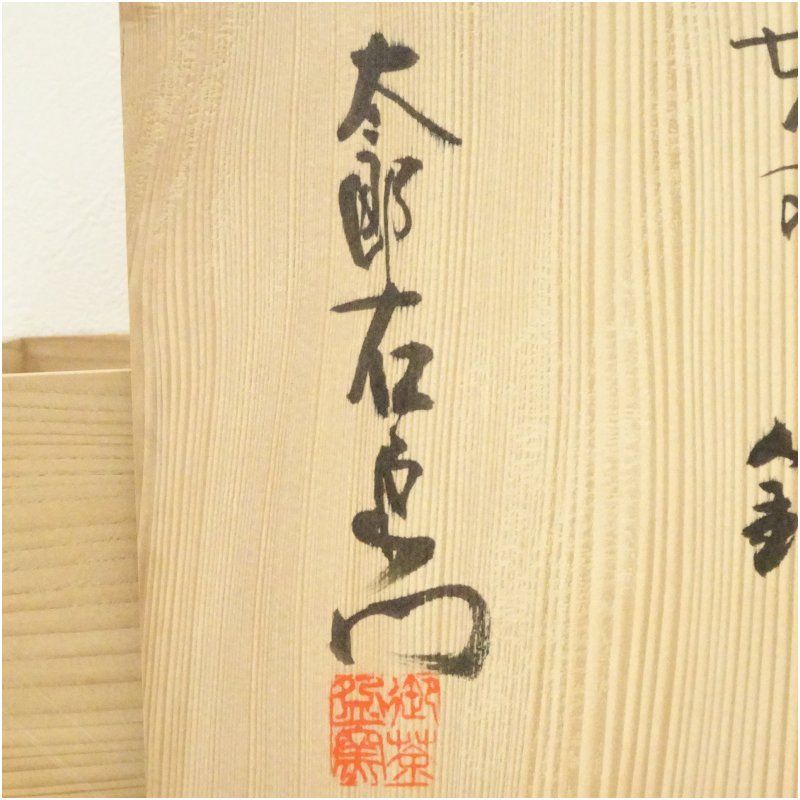 太郎右衛門
御茶盌窯